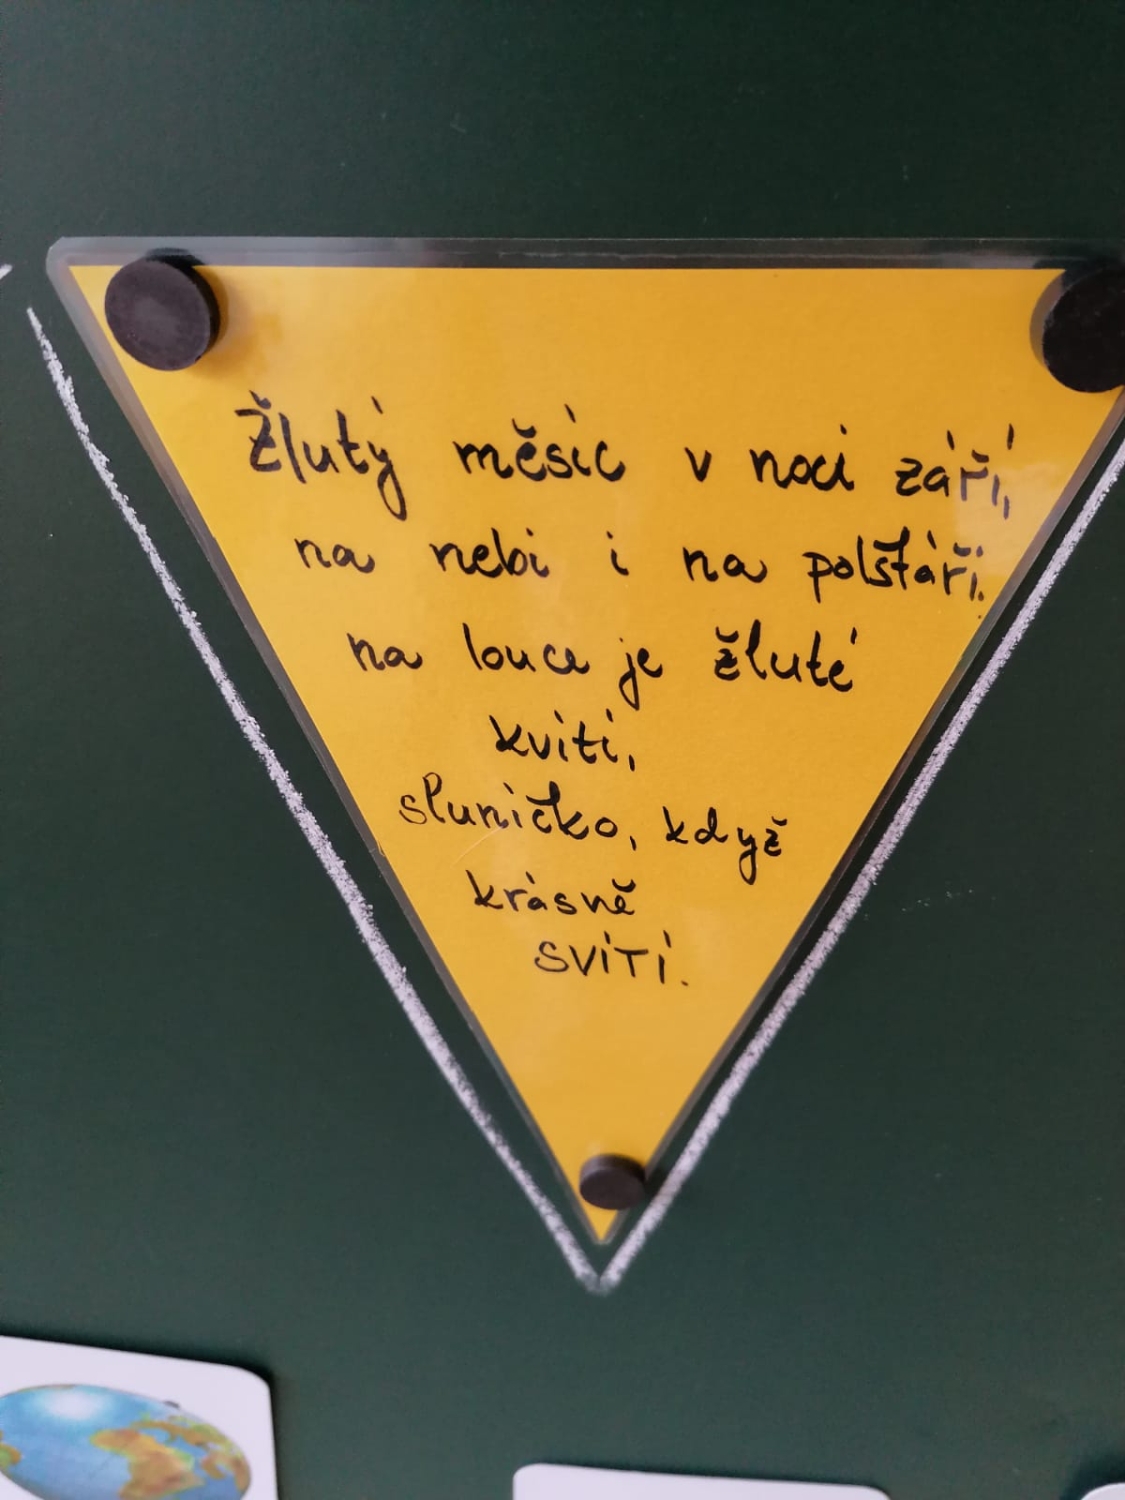 Žlutý měsíc v noci září,
na nebi i na polštáři.
na louce je žluté
kvítí,
sluníčko, když
krásně
svítí.